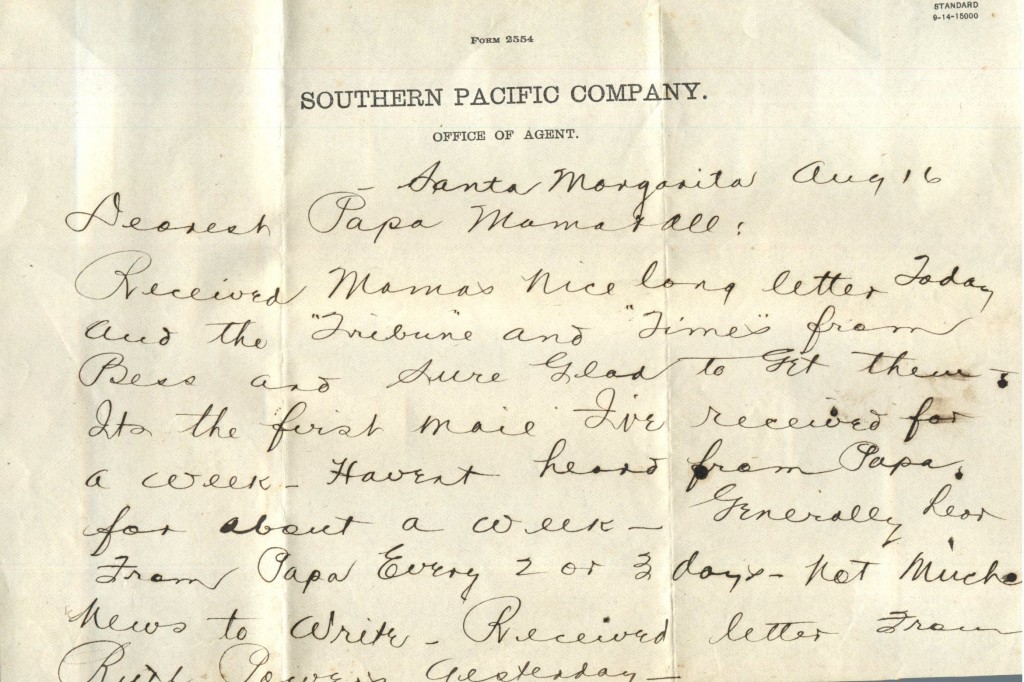 STANDARD
9-14-15000
FORM 2554
SOUTHERN PACIFIC COMPANY.
OFFICE OF AGENT.
- Santa Morgarita Aug 16
Dearest Papa Mama & all:
Received Mamas Nice long letter Today
and the "Tribune" and "Times" from
Bess and Sure Glad to Get them -
Its the first mail I've received for
a week - Havent heard from Papa.
for about a week - Generally hear
From Papa Every 2 or 3 days - Not Much
News to Write - Received letter From
Ruth Powers Yesterday -